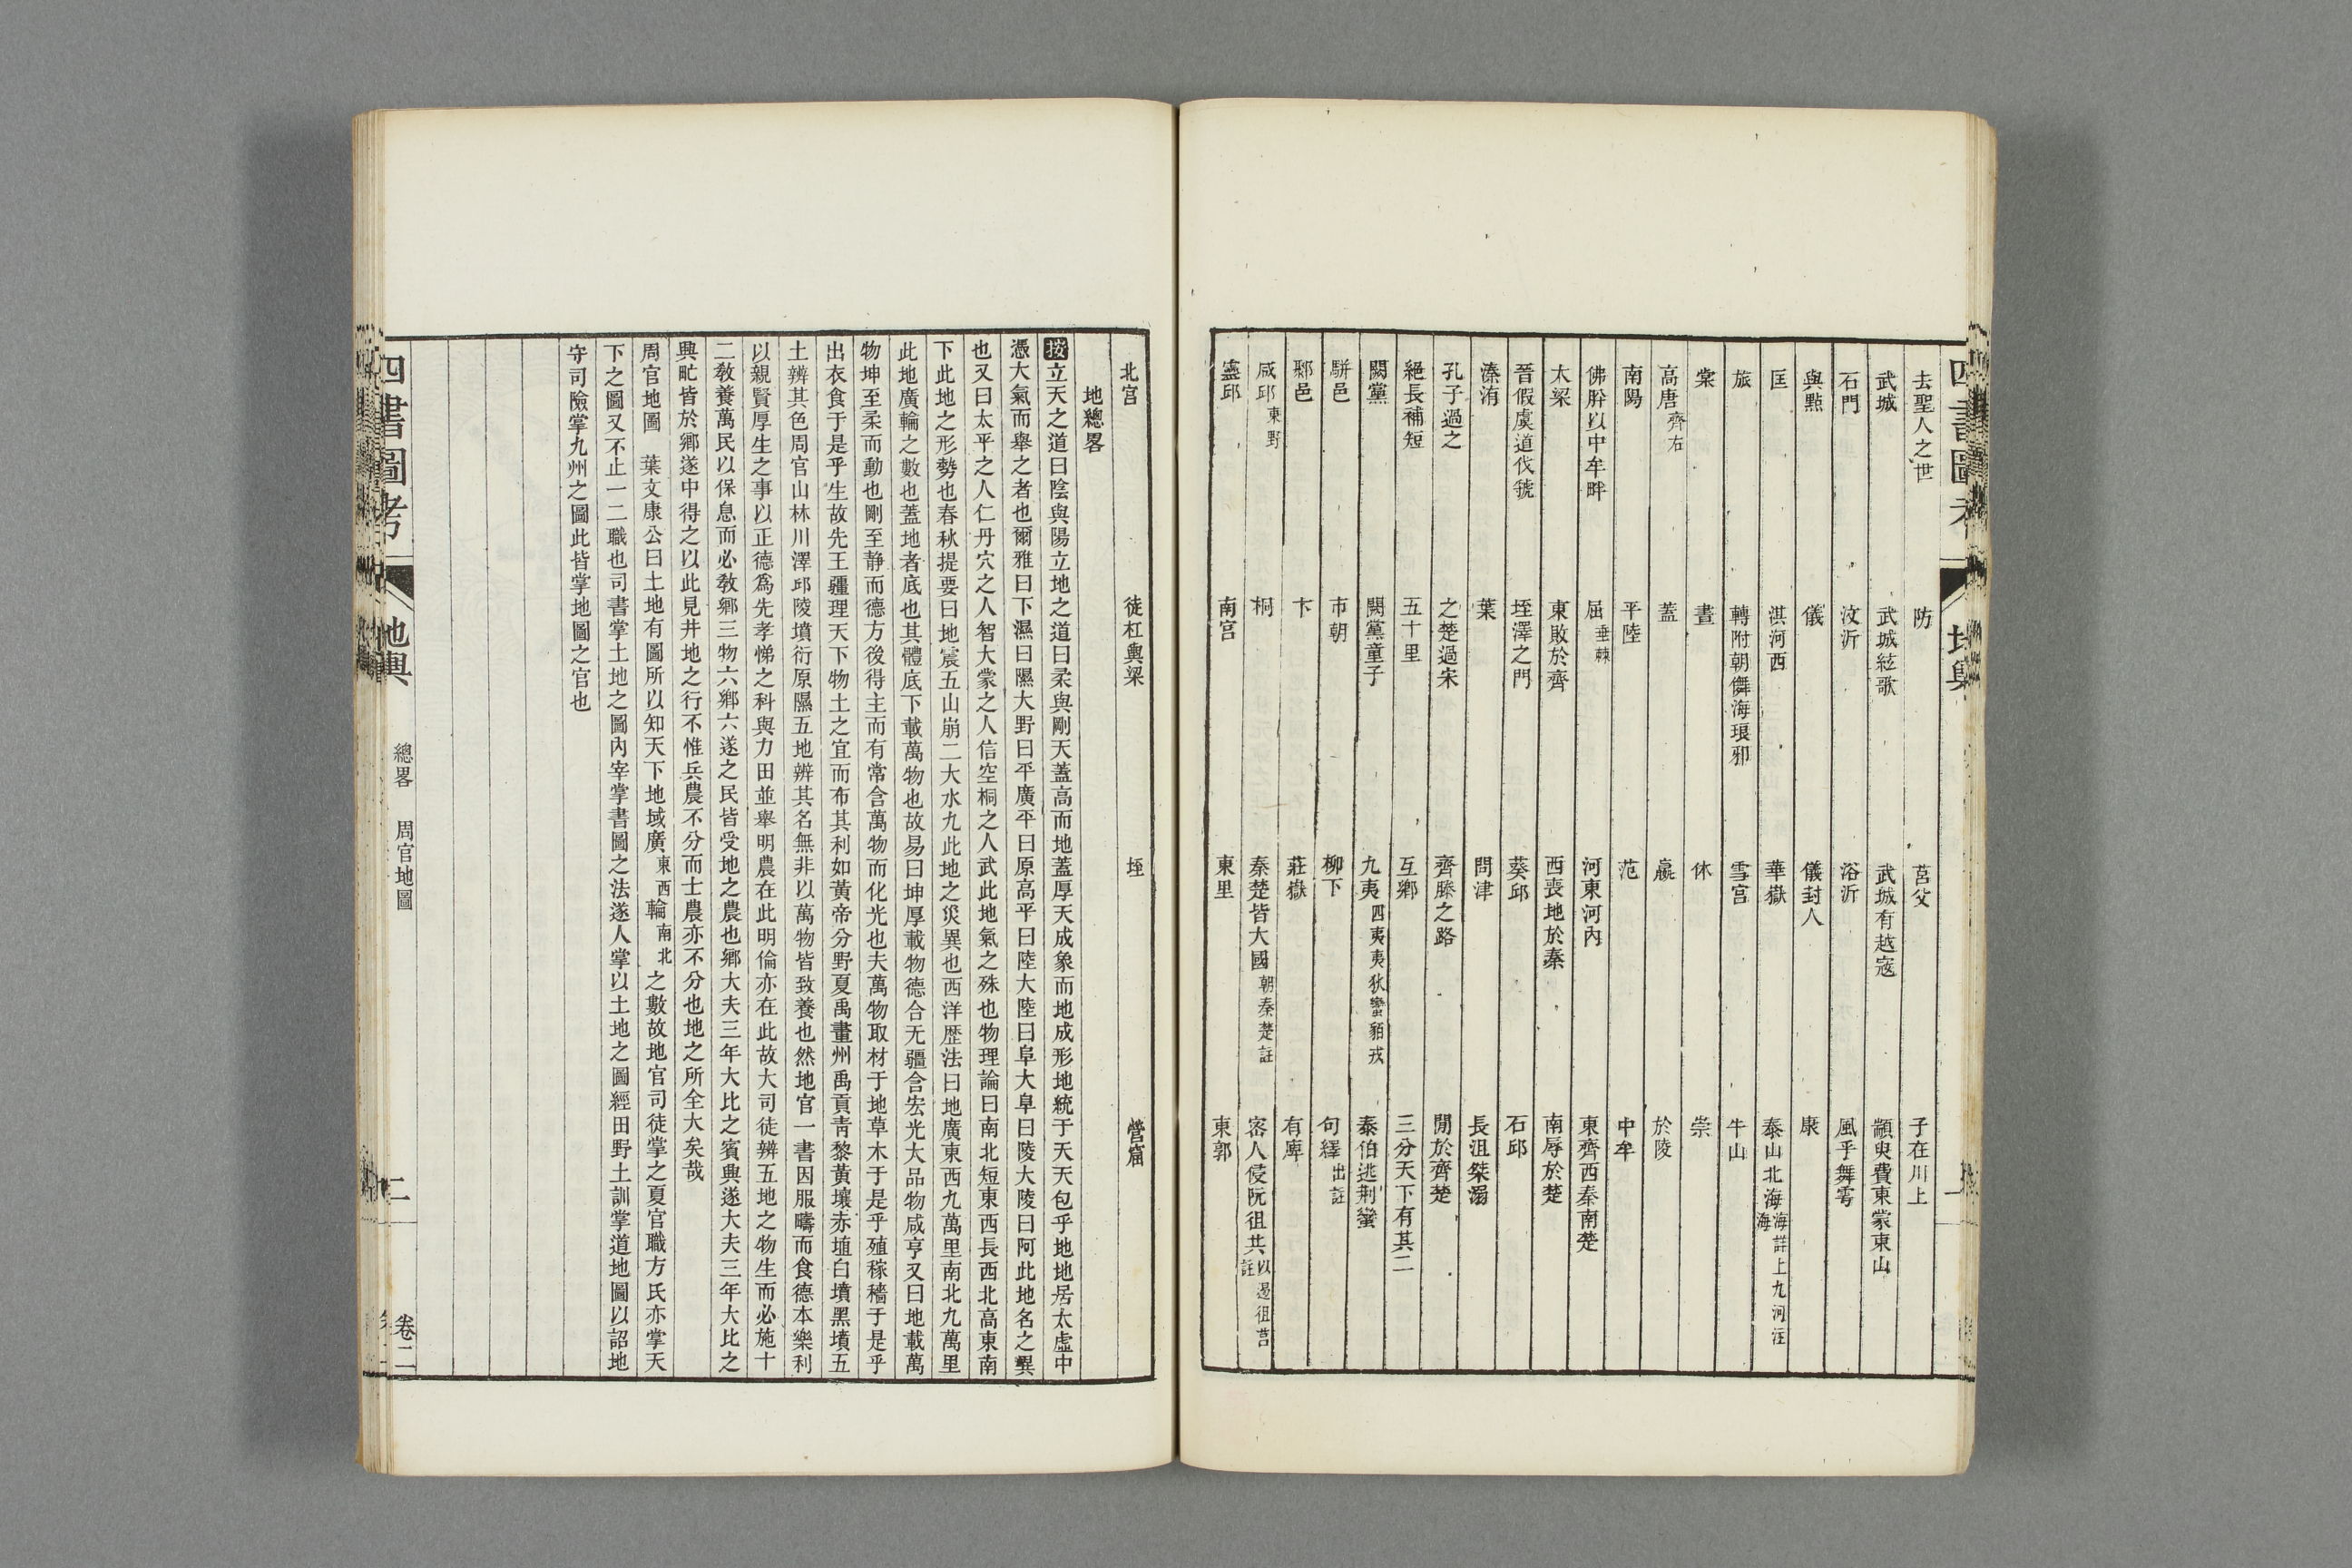 四書圖考 地輿
去聖人之世 防 莒父 子在川上
武城 武城絃歌 武城有越寇 顓臾費東蒙東山
石門 汶沂 浴沂 風乎舞雩
與㸃 儀 儀封人 康
匡 淇河西 華嶽 泰山北海海詳上九河注海
旅 轉附朝儛海琅邪 雪宮 牛山
棠 晝 休 崇
高唐齊右 蓋 嬴 於陵
南陽 平陸 范 中牟
佛肸以中牟畔 屈垂棘 河東河內 東齊西秦南楚
大梁 東敗於齊 西喪地於秦 南辱於楚
晉假虞道伐虢 垤澤之門 葵邱 石邱
溱洧 葉 問津 長沮桀溺
孔子過之 之楚過宋 齊滕之路 閒於齊楚
絕長補短 五十里 互鄉 三分天下有其二
闕黨 闕黨童子 九夷四夷夷狄蠻貊戎 泰伯逃荆蠻
駢邑 市朝 柳下 句繹出註
鄹邑 卞 莊嶽 有庳
咸邱東野 桐 秦楚皆大國朝秦楚註 密人侵阮徂共以遏徂莒註
靈邱 南宫 東里 東郭
北宫 徒杠輿梁 垤 營窟
地總畧
按立天之道曰陰與陽立地之道曰柔與剛天蓋高而地蓋厚天成象而地成形地統于天天包乎地地居太虛中
憑大氣而舉之者也爾雅曰下濕曰隰大野曰平廣平曰原高平曰陸大陸曰阜大阜曰陵大陵曰阿此地名之異
也又曰太平之人仁丹穴之人智大蒙之人信空桐之人武此地氣之殊也物理論曰南北短東西長西北高東南
下此地之形勢也春秋提要曰地震五山崩二大水九此地之災異也西洋歴法曰地廣東西九萬里南北九萬里
此地廣輪之數也蓋地者底也其體底下載萬物也故易曰坤厚載物德合无疆含宏光大品物咸亨又曰地載萬
物坤至柔而動也剛至静而德方後得主而有常含萬物而化光也夫萬物取材于地草木于是乎殖稼穡于是乎
出衣食于是乎生故先王疆理天下物土之宜而布其利如黃帝分野夏禹畫州禹貢靑黎黃壤赤埴白墳黑墳五
土辨其色周官山林川澤邱陵墳衍原隰五地辨其名無非以萬物皆致養也然地官一書因服疇而食德本樂利
以親賢厚生之事以正德爲先孝悌之科與力田並舉明農在此明倫亦在此故大司徒辨五地之物生而必施十
二敎養萬民以保息而必敎鄉三物六鄉六遂之民皆受地之農也鄉大夫三年大比之賓興遂大夫三年大比之
興甿皆於鄉遂中得之以此見井地之行不惟兵農不分而士農亦不分也地之所全大矣哉
周官地圖 葉文康公曰土地有圖所以知天下地域廣東西輪南北之數故地官司徒掌之夏官職方氏亦掌天
下之圖又不止一二職也司書掌土地之圖內宰掌書圖之法遂人掌以土地之圖經田野土訓掌道地圖以詔地
守司險掌九州之圖此皆掌地圖之官也
四書圖考 地輿 總畧 周官地圖 二 卷二